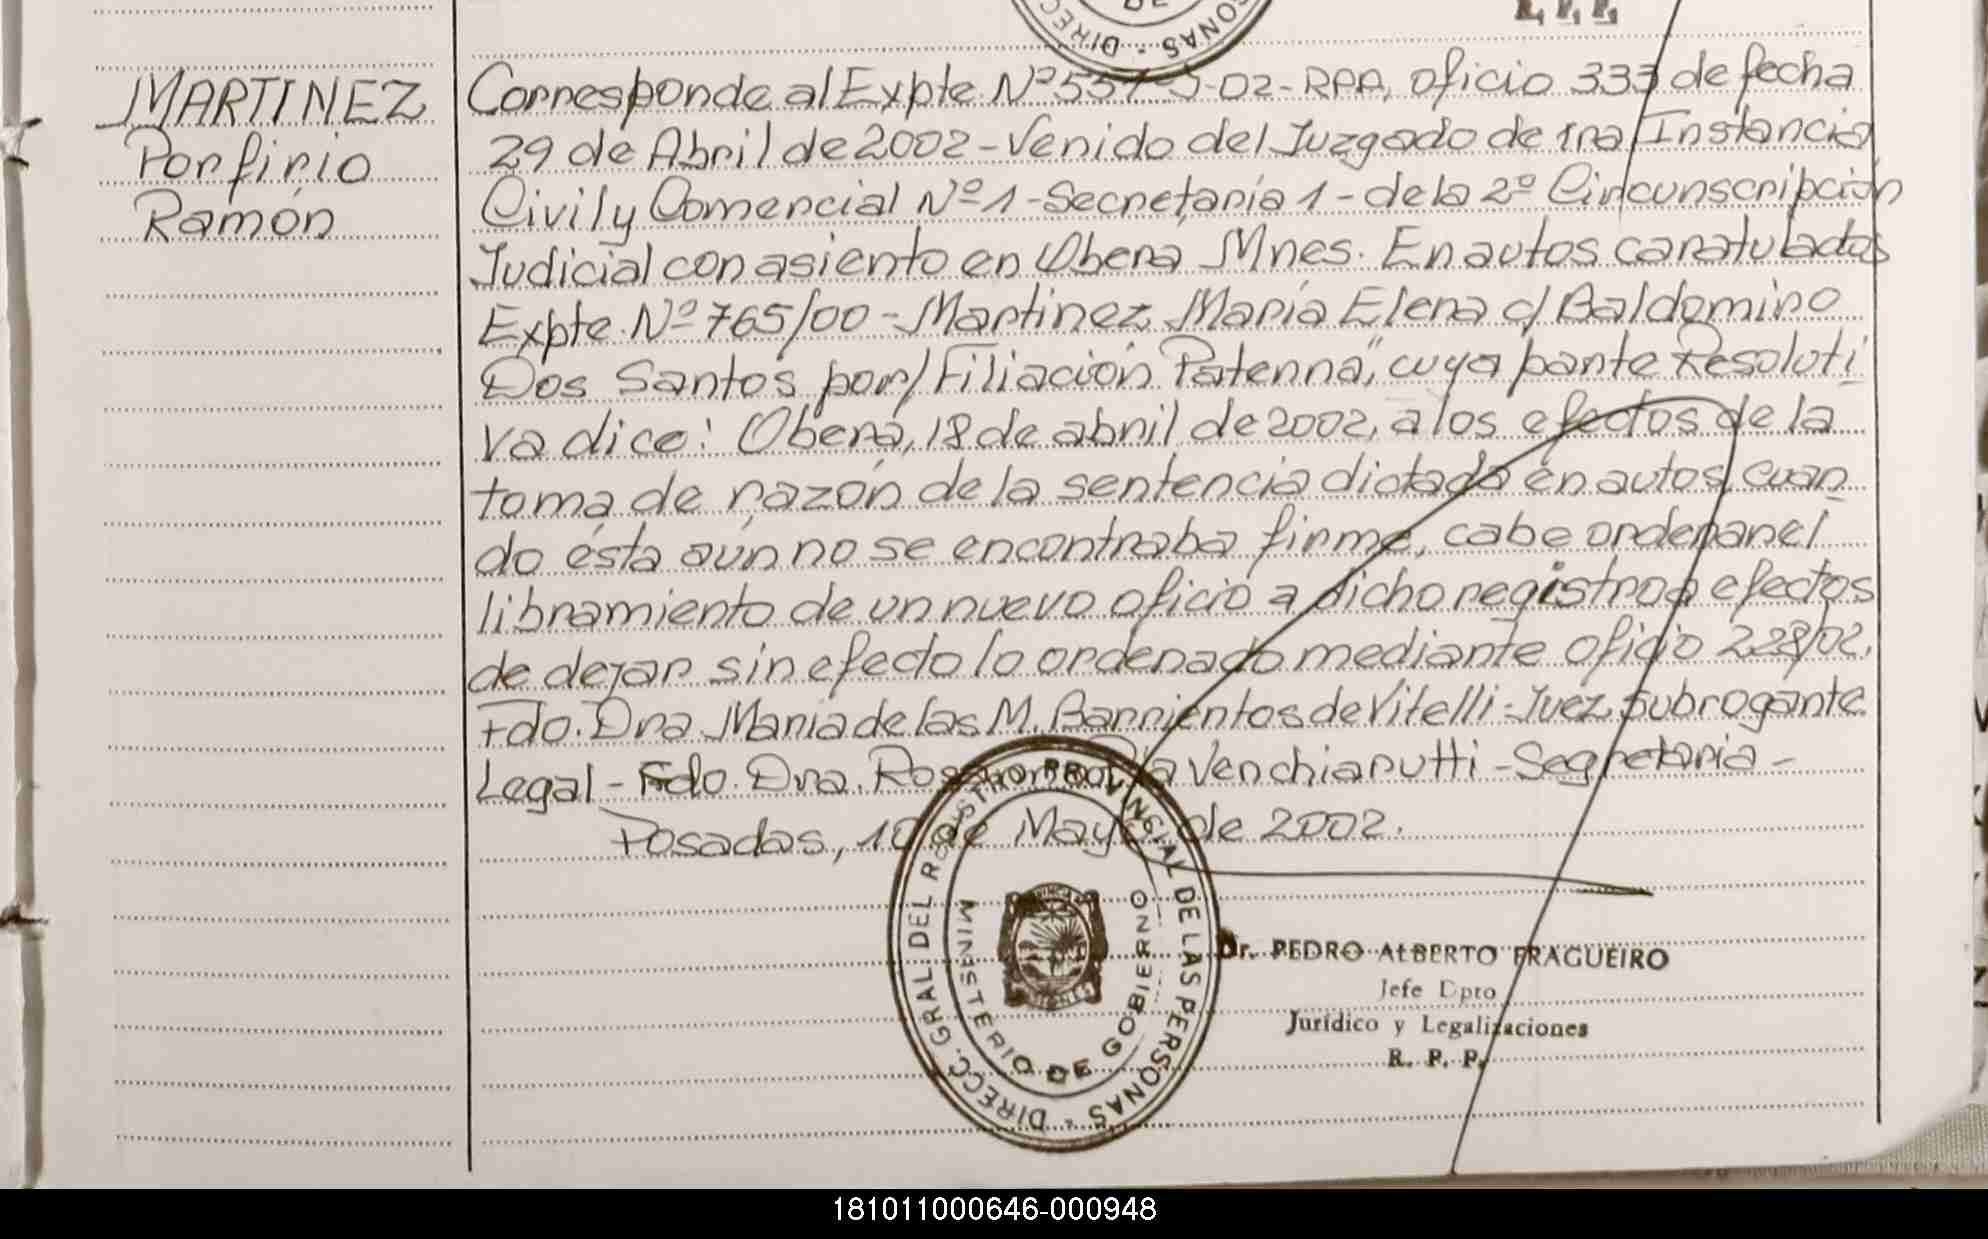 R. P. P.
MARTINEZ
Porfirio
Ramón
Corresponde al Expte. Nº J-02-RPP, oficio 333 de fecha
29 de Abril de 2002 - Venido del Juzgado de 1ra Instancia
Civil y Comercial Nº 1 - Secretaría 1 - de la 2º Circunscripción
Judicial con asiento en Oberá Mnes. En autos caratulados
Expte. Nº 765/00 - Martinez, María Elena c/ Baldomiro
Dos Santos por/ Filiación Paterna", cuya parte Resoluti
va dice: Oberá, 18 de abril de 2002, a los efectos de la
toma de razón de la sentencia dictada en autos, cuan
do ésta aún no se encontraba firme, cabe ordenar el
libramiento de un nuevo oficio a dicho registro a efectos
de dejar sin efecto lo ordenado mediante oficio 228/02.
Fdo. Dra. María de las M. Barrientos de Vitelli - Juez Subrogante
Legal - Fdo. Dra. Venchiarutti - Segretaria -
Posadas, 10 de Mayo de 2002.
DIRECC. GRAL DEL REGISTRO PROVINCIAL DE LAS PERSONAS
MINISTERIO DE GOBIERNO
Dr. PEDRO ALBERTO FRAGUEIRO
Jefe Dpto
Jurídico y Legalizaciones
R. P. P.
181011000646-000948